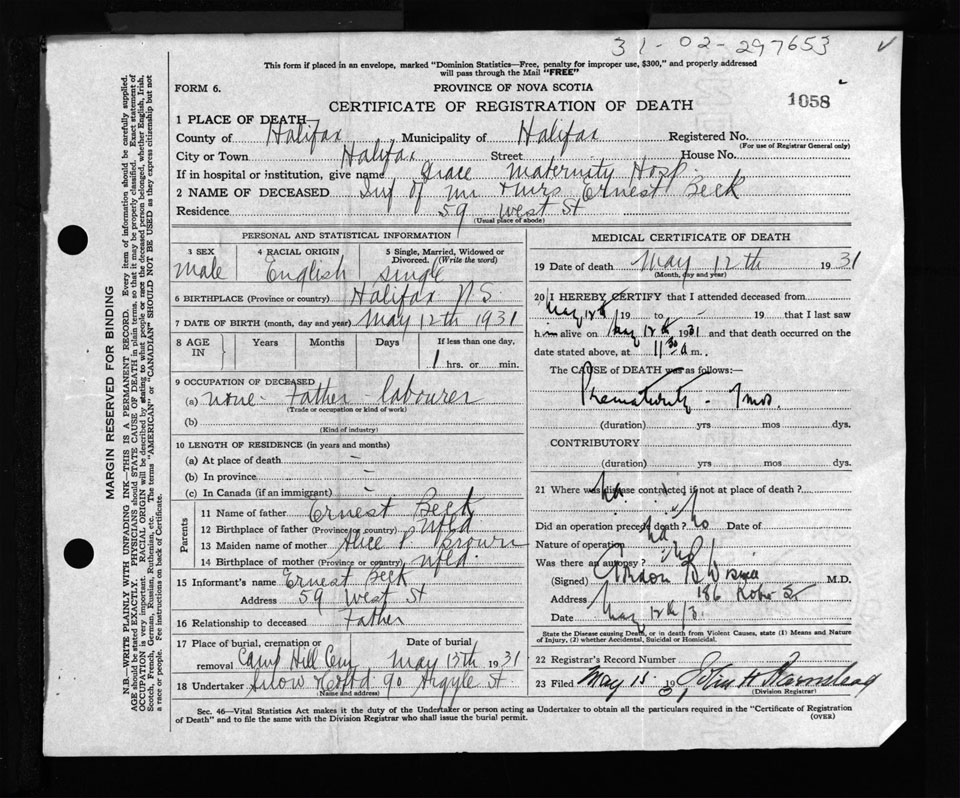 31-02-297653
This form if placed in an envelope, marked "Dominion Statistics—Free, penalty for improper use, $300," and properly addressed
will pass through the Mail "FREE"
FORM 6.
PROVINCE OF NOVA SCOTIA
CERTIFICATE OF REGISTRATION OF DEATH
1058
1 PLACE OF DEATH
County of Halifax Municipality of Halifax Registered No.
(For use of Registrar General only)
City or Town Halifax Street House No.
If in hospital or institution, give name Grace Maternity Hosp.
2 NAME OF DECEASED Inf of Mr + Mrs Ernest Beck
Residence 59 West St
(Usual place of abode)
PERSONAL AND STATISTICAL INFORMATION
3 SEX 4 RACIAL ORIGIN 5 Single, Married, Widowed or
Divorced. (Write the word)
Male English single
6 BIRTHPLACE (Province or country) Halifax N S
7 DATE OF BIRTH (month, day and year) May 12th 1931
8 AGE IN Years Months Days If less than one day,
1 hrs. or min.
9 OCCUPATION OF DECEASED
(a) none - Father labourer
(Trade or occupation or kind of work)
(b)
(Kind of industry)
10 LENGTH OF RESIDENCE (in years and months)
(a) At place of death —
(b) In province —
(c) In Canada (if an immigrant) —
Parents
11 Name of father Ernest Beck
12 Birthplace of father (Province or country) Nfld
13 Maiden name of mother Alice P. Brown
14 Birthplace of mother (Province or country) Nfld
15 Informant's name Ernest Beck
Address 59 West St
16 Relationship to deceased Father
17 Place of burial, cremation or Date of burial
removal Camp Hill Cem May 13th 1931
18 Undertaker Snow & Co Ltd 90 Argyle St
(Name and address)
MEDICAL CERTIFICATE OF DEATH
19 Date of death May 12th 1931
(Month, day and year)
20 I HEREBY CERTIFY that I attended deceased from
May 12th 19 to - 19 that I last saw
him alive on May 12th 1931 and that death occurred on the
date stated above, at 11 30 a m.
The CAUSE of DEATH was as follows:—
Prematurity - 7 mos.
(duration) yrs mos dys.
CONTRIBUTORY
(duration) yrs mos dys.
21 Where was disease contracted if not at place of death?
Did an operation precede death? No Date of
Nature of operation
Was there an autopsy? no
(Signed) M.D.
Address 186
Date May 12th/31
State the Disease causing Death, or in death from Violent Causes, state (1) Means and Nature
of Injury, (2) whether Accidental, Suicidal or Homicidal.
22 Registrar's Record Number
23 Filed May 15 19 John H
(Division Registrar)
Sec. 46—Vital Statistics Act makes it the duty of the Undertaker or person acting as Undertaker to obtain all the particulars required in the "Certificate of Registration
of Death" and to file the same with the Division Registrar who shall issue the burial permit.
(OVER)
MARGIN RESERVED FOR BINDING
N.B.—WRITE PLAINLY WITH UNFADING INK—THIS IS A PERMANENT RECORD. Every item of information should be carefully supplied.
AGE should be stated EXACTLY. PHYSICIANS should STATE CAUSE OF DEATH in plain terms, so that it may be properly classified. Exact statement of
OCCUPATION is very important. RACIAL ORIGIN will be described by stating to what people or race the deceased person belonged, whether English, Irish,
Scotch, French, German, Russian, Ruthenian, etc. The terms "AMERICAN" or "CANADIAN" SHOULD NOT BE USED as they express citizenship but not
a race or people. Fee instructions on back of Certificate.